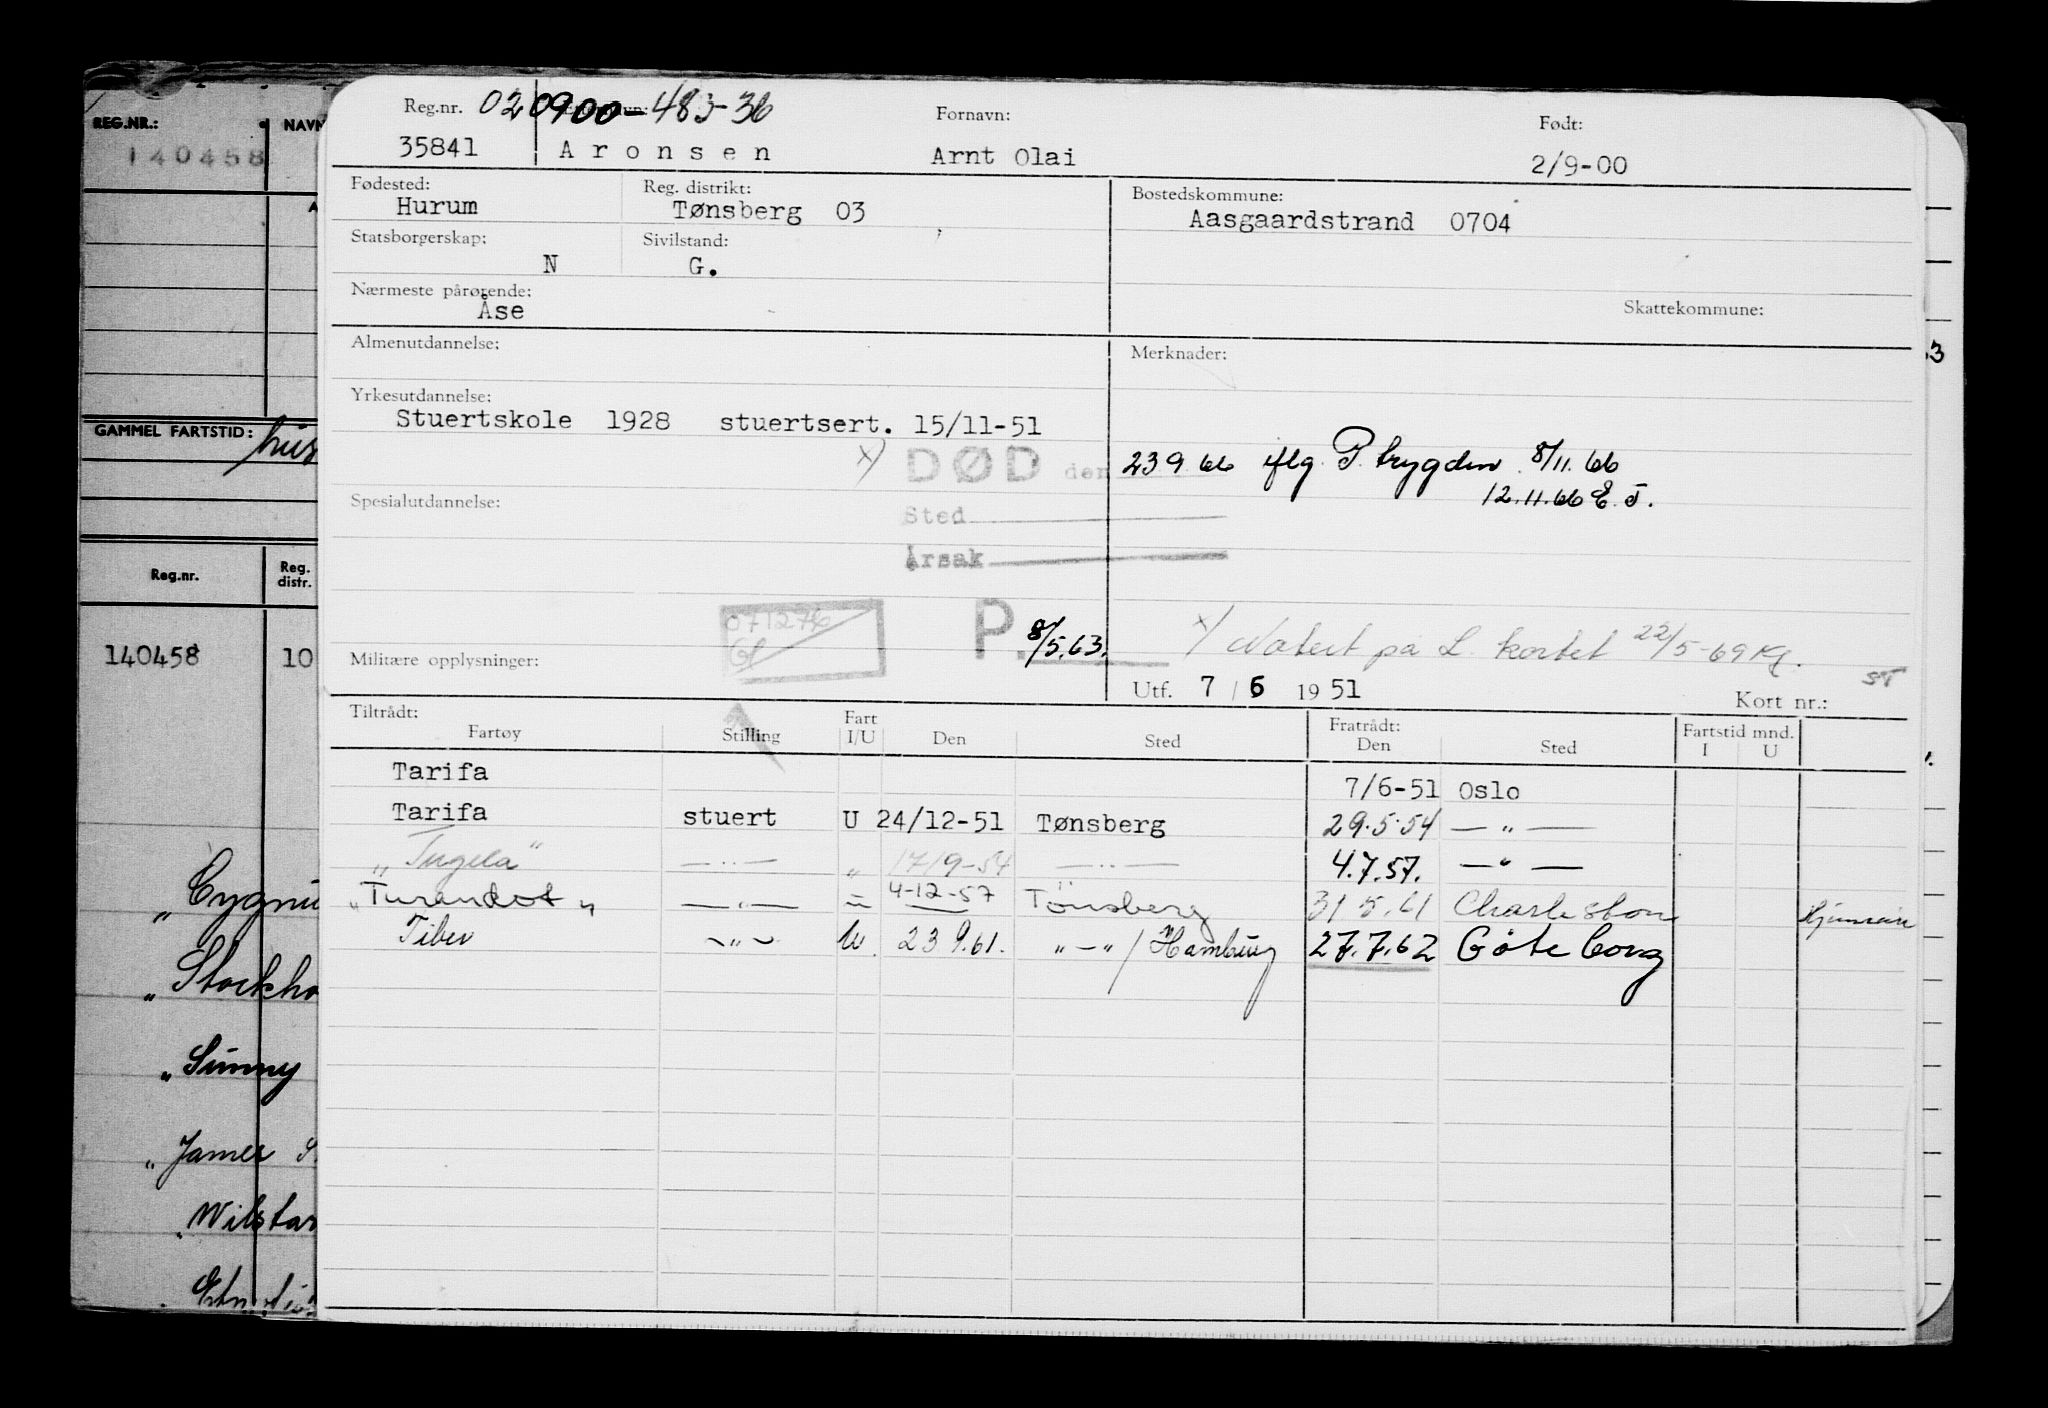 REG.NR.: NAVN
140458
GAMMEL FARTSTID:
Reg.nr. Reg. distr.
140458 10
"Sunny
"James
Reg.nr. 020900-483-36 Fornavn: Født:
35841 Aronsen Arnt Olai 2/9-00
Fødested: Reg. distrikt: Bostedskommune:
Hurum Tønsberg 03 Aasgaardstrand 0704
Statsborgerskap: Sivilstand:
N G.
Nærmeste pårørende: Skattekommune:
Åse
Almenutdannelse: Merknader:
Yrkesutdannelse:
Stuertskole 1928 stuertsert. 15/11-51
x) DØD den 23 9. 66 iflg. P. trygden 8/11.66
12.11.66 E. T.
Spesialutdannelse: Sted
Årsak
071276
P. 8/5.63. x/ Notert på L. kortet 22/5-69 Kg.
Militære opplysninger: ST
Utf. 7 / 6 1951 Kort nr.:
Tiltrådt: Fart Fratrådt: Fartstid mnd.
Fartøy Stilling I/U Den Sted Den Sted I U
Tarifa 7/6-51 Oslo
Tarifa stuert U 24/12-51 Tønsberg 29.5.54 — " —
"Tugela" — " — " 17/9-54 — " — 4.7.57. — " —
"Turandot" — " — = 4-12-57 Tönsberg 31 5.61 Charleston Hjemreise
Tiber — " — U 23 9.61. " - " / Hamburg 27.7.62 Göteborg